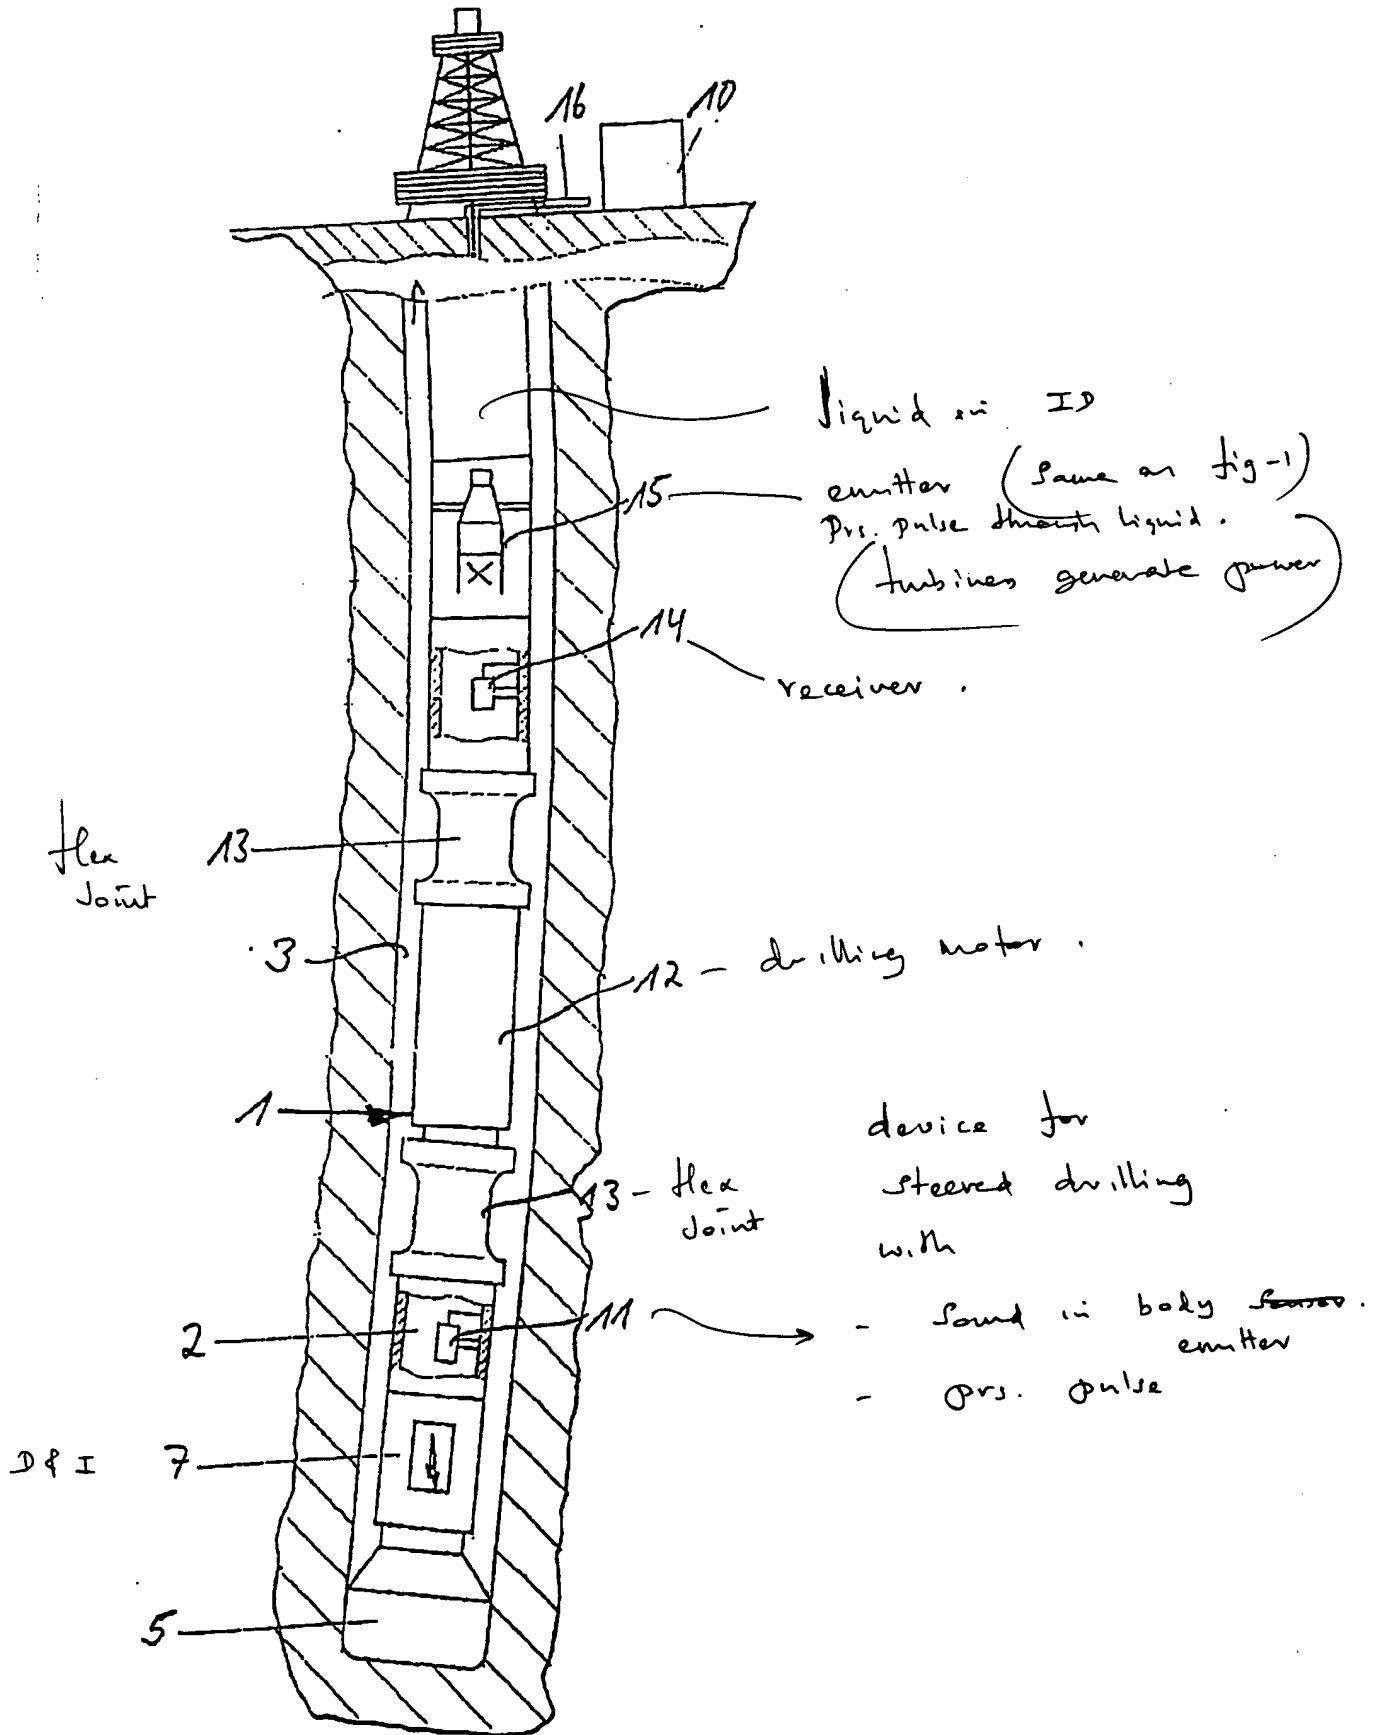 16
10
liquid in ID
15
emitter (same as fig-1)
Prs. pulse through liquid.
(turbines generate power)
14
receiver.
flex
Joint
13
3
12 - drilling motor.
1
device for
steered drilling
with
13 - flex
Joint
11
- Sound in body sensor.
emitter
- prs. pulse
2
D & I 7
5